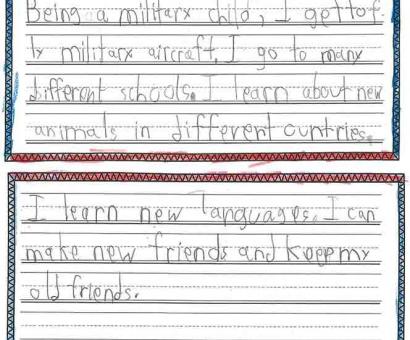 Being a militarx child, I get to f
lx militarx aircraft. I go to many
different schools. I learn about new
animals in different cuntries.
I learn new languages. I can
make new friends and keep my
old friends.